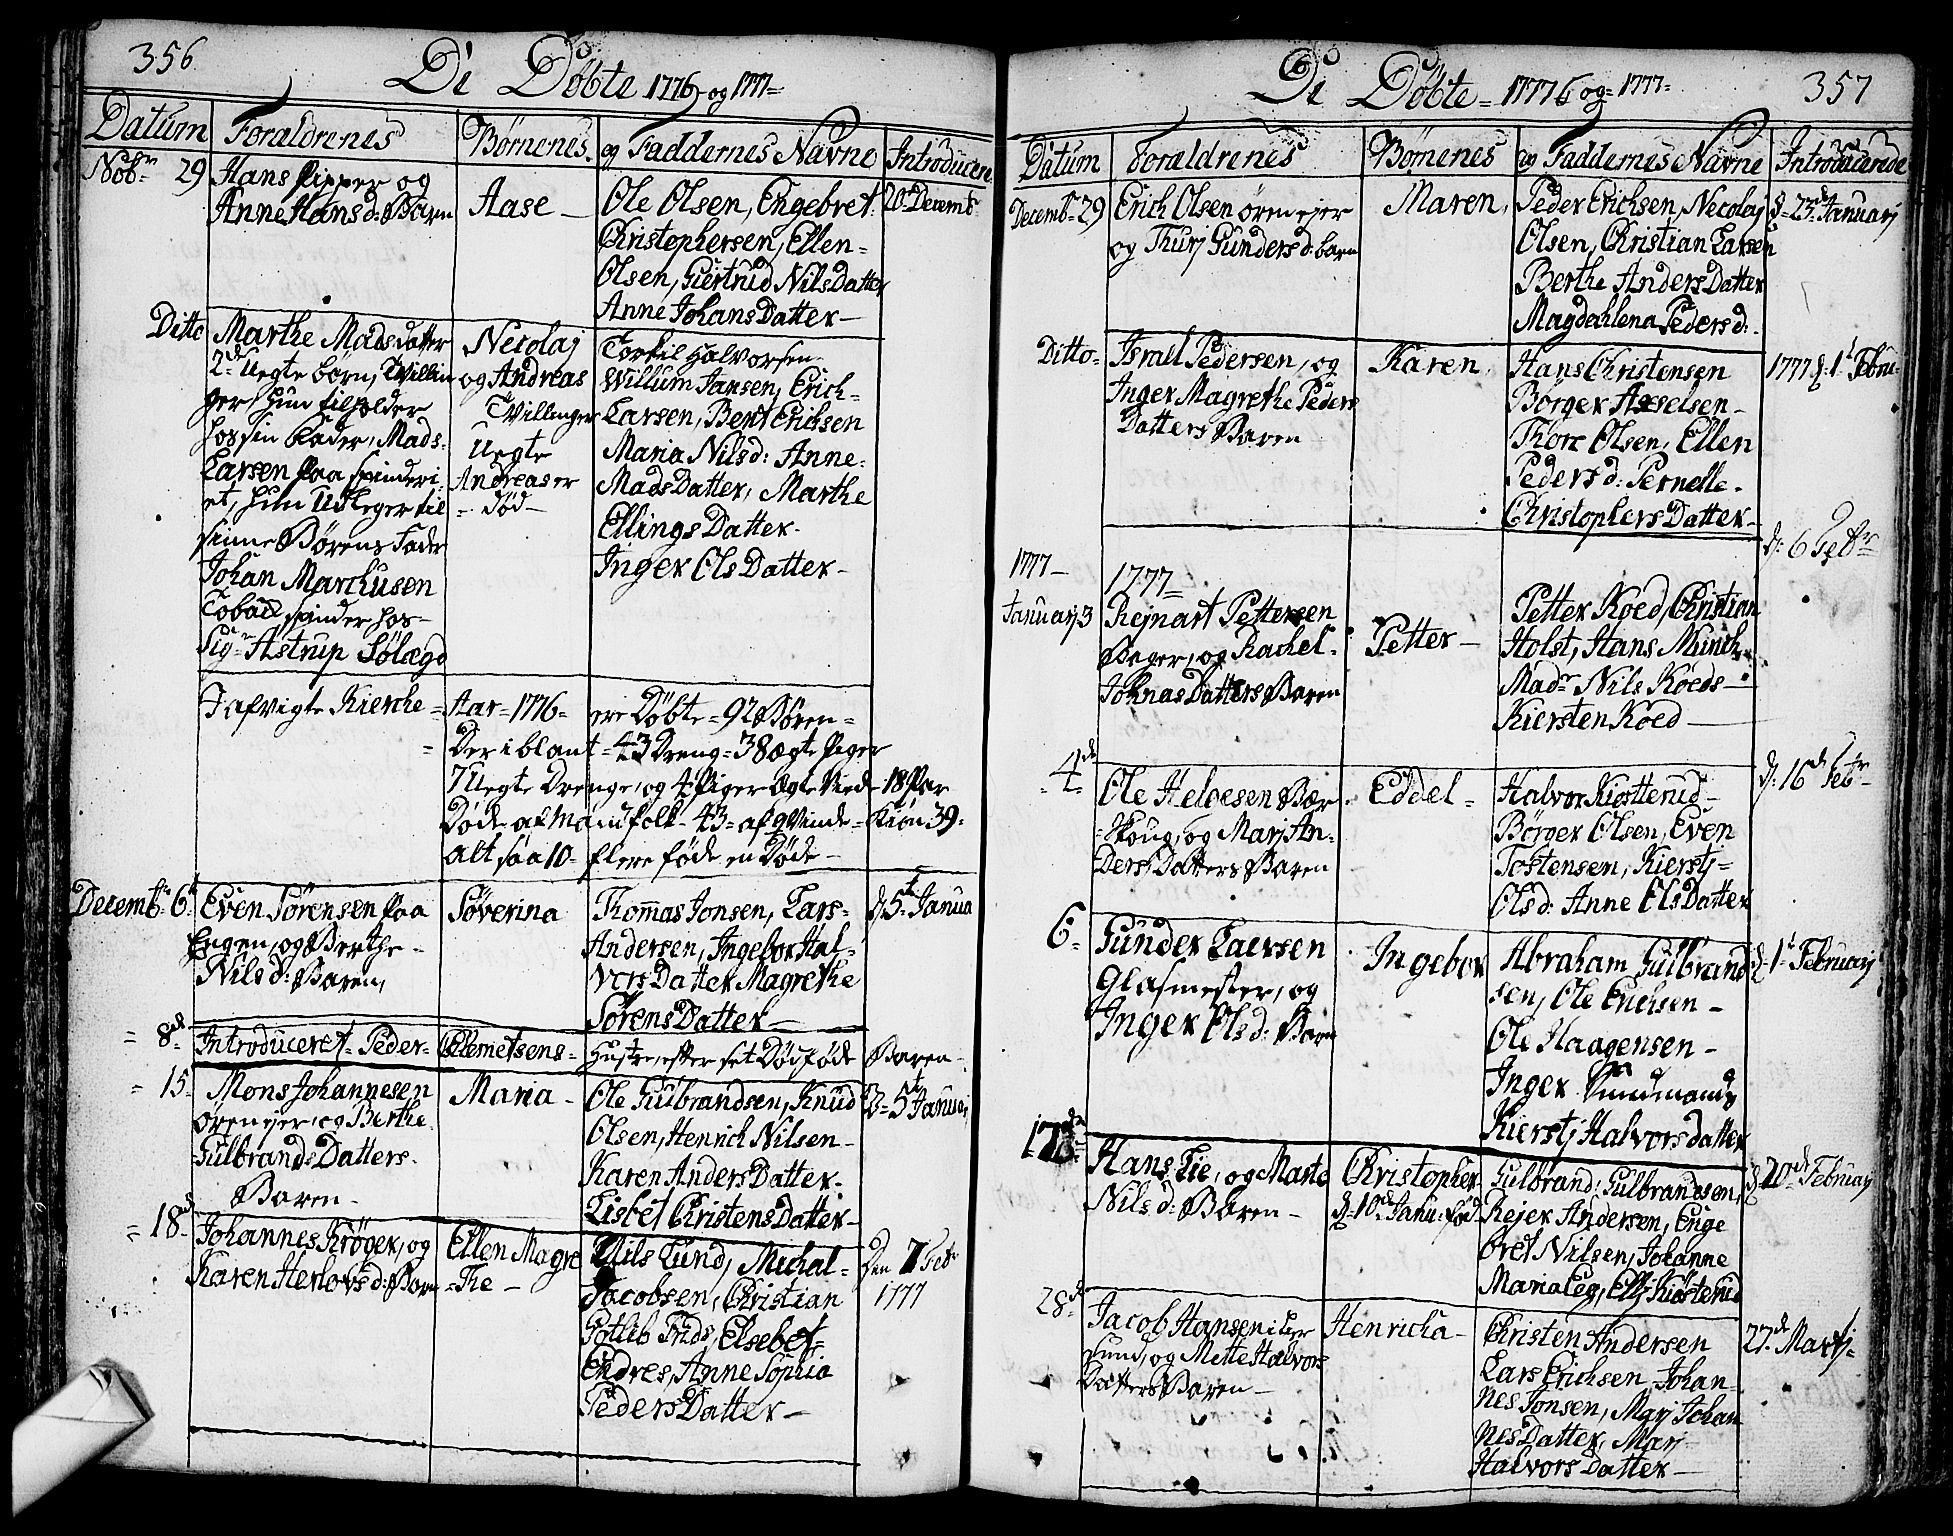 356
De Döbte 1776 og 1777=
Datum Foraldrenes Börnenes og Faddernes Navne Introducer.
Nobr 29 Hans Pipper og
Anne Hansd: Barn
Aase —
Ole Olsen, Engebret
Christophersen, Ellen=
Olsen, Giertrud NilsDatter
Anne JohansDatter —
20 Decemb
Ditto Marthe Madsdatter
2de Uegte börn, Twillin
ger hun tilholder
hos sin Fader, Mads
Larsen paa spinderi
et, hun Udleger til
sinne Börens Fader
Johan Marchusen
Tobach spinder hos
Sigr Astrup Sölægd
Necolaj
og Andreas
Twillinger
Uegte
Andreas er
död —
Torkil Halvorsen
Willum Jansen, Erich=
Larsen, Bent Erichsen
Maria Nilsd: Anne=
MadsDatter, Marthe
EllingsDatter
Inger OlsDatter —
I afvigte Kierche = Aar=1776= ere Döbte = 92 Bören =
= Der iblant = 43 Dreng = 38 ægte Piger
7 Uegte Drenge, og 4 Piger Ægte Viede 18 Par
Döde af Mandfolk 43 = af qvinde = Kiön 39 =
alt saa 10 = flere föde en Döde —
Decemb: 6t Even Sörensen paa
Engen, og Berthe =
Nilsd: Baren,
Söverina
Thommas Jonsen, Lars=
Andersen, Ingebor Hal=
vorsDatter Magrethe
SörensDatter —
d: 5t Janua
= 8de Introduceret Peder= Clemetsens= Hustre, efter sit Dödföde Baren
= 15 Mons Johannesen
örenejer, og Berthe
GulbrandsDatters
Baren
Maria
Ole Gulbrandsen, Knud
Olsen, Henrich Nilsen
Karen AndersDatter
Lisbet ChristensDatter
D= 5t Januai
= 18de Johannes Kröger, og
Karen Herlovsd: Barn
Ellen Magre
=the —
Nils Lund, Michal=
Jacobsen, Christian
Gotlib Frids, Elsebet
Endres, Anne Sophia
PedersDatter —
Den 7 Feb
1777
De Döbte = 17776 og = 1777=
357
Datum Foraldrenes Börnenes og Faddernes Navne Introducerede
Decemb= 29 Erich Olsen örenejer
og Thurj Gundersd: barn
Maren,
Peder Erichsen, Necolaj
Olsen, Christian Larsen
Berthe AndersDatter
Magdahlena Pedersd:
d= 23de Januarj
Ditto= Israel Pedersen, og
Inger Magrethe Peders
Datters Baren
Karen,
Hans Christensen
Börger Axselsen
Thore Olsen, Ellen
Pedersd: Pernelle
ChristophersDatter
1777 d: 1t Febru
1777 —
Januarj 3
1777=
Rejnart Pettersen
Bager, og Rachel
JohnasDatters Baren
Petter —
Petter Koed, Christian
Holst, Hans Munch
Madr Nils Koeds
Kiersten Koed
d: 6 Febr
4de Ole Helgesen Bær
skoug, og Marj An
DersDatters Baren
Eddel =
Halvor Kiostterud
Börger Olsen, Even
Tostensen, Kierstj=
Olsd: Anne OlsDatter
d: 16de Febr
6= Gunder Laersen
Glasmester, og
Inger Olsd: Barn
Ingebor
Abraham Gulbrand
sen, Ole Erichsen
Ole Haagensen
Inger
Kierstj Halvorsdatter
d= 1t Februarj
17de
Hans Lie, og Marte
Nilsd: Baren
Christopher
d= 10de Janu: föd
Gulbrand: Gulbrandsen,
Rejer Andersen, Enge
bret Nilsen, Johanne
Maria Leg, Ellj Kiösterud
d: 20de Februarj
28de Jacob Hansen i Lær
sund, og Mette Halvors
Datters Baren
Henricha
Christen Andersen
Lars Erichsen Johan=
nes Jonsen, Marj Johan
nesDatter, Marj
HalvorsDatter —
27de Martj=